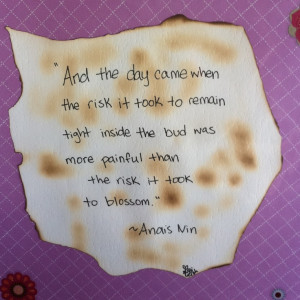 "And the day came when
the risk it took to remain
tight inside the bud was
more painful than
the risk it took
to blossom."
~Anais Nin